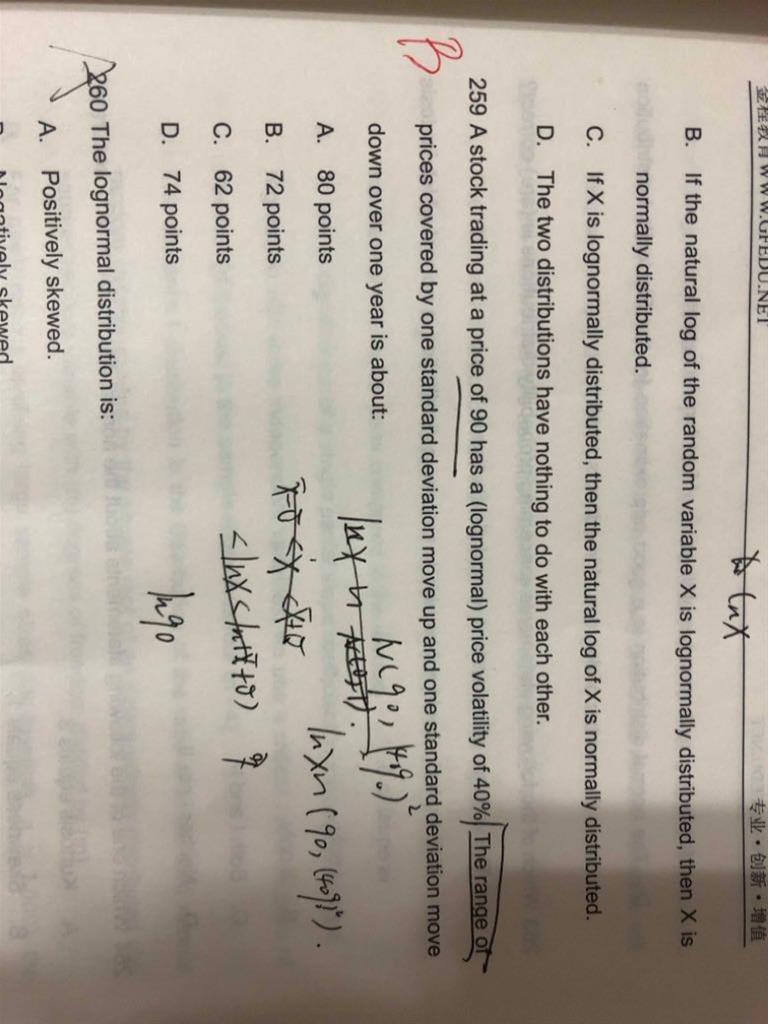 金程教育 WWW.GFEDU.NET 专业·创新·增值
lnX
B. If the natural log of the random variable X is lognormally distributed, then X is
normally distributed.
C. If X is lognormally distributed, then the natural log of X is normally distributed.
D. The two distributions have nothing to do with each other.
B
259 A stock trading at a price of 90 has a (lognormal) price volatility of 40%. The range of
prices covered by one standard deviation move up and one standard deviation move
down over one year is about:
N(90, (40%)²
A. 80 points
lnX
lnX~(90, (40%)²).
B. 72 points
C. 62 points
D. 74 points
ln90
260 The lognormal distribution is:
A. Positively skewed.
Negatively skewed